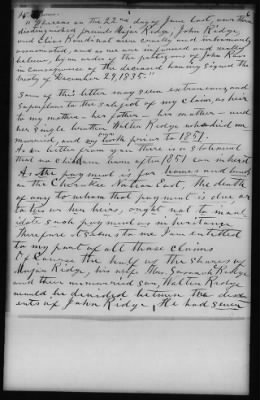 "Whereas on the 22nd day of June last, our three
distinguished friends Major Ridge, John Ridge
and Elias Boudinot were cruelly and inhumanly
assassinated, and as we are informed and really
believe, by order of the partizans of John Ross
in consequence of the deceased having signed the
treaty of December 29, 1835."
Some of this letter may seem extraneous and
superfluous to the subject of my claim, as heir
to my mother - her father - her mother - and
her single brother, Walter Ridge who died un
married, and my own birth prior to 1851.
As in letter from your there is a statement
that no children born after 1851 can inherit
As the payment is for homes and lands
in the Cherokee Nation East, the death
of any to whom that payment is due, or
to his or her heirs, ought not to inval
idate such payment or inheritance
Therefore it seems to me I am entitled
to my part of all those claims
Of course the half of the shares of
Major Ridge, his wife Mrs. Susannah Ridge
and their unmarried son, Walter Ridge
would be divided between the desc
ents of John Ridge, He had seven